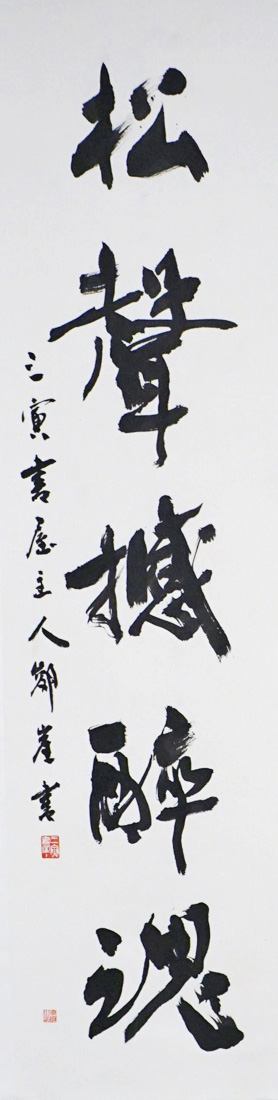 松聲撼醉魂
三寅書屋主人鄧崖書